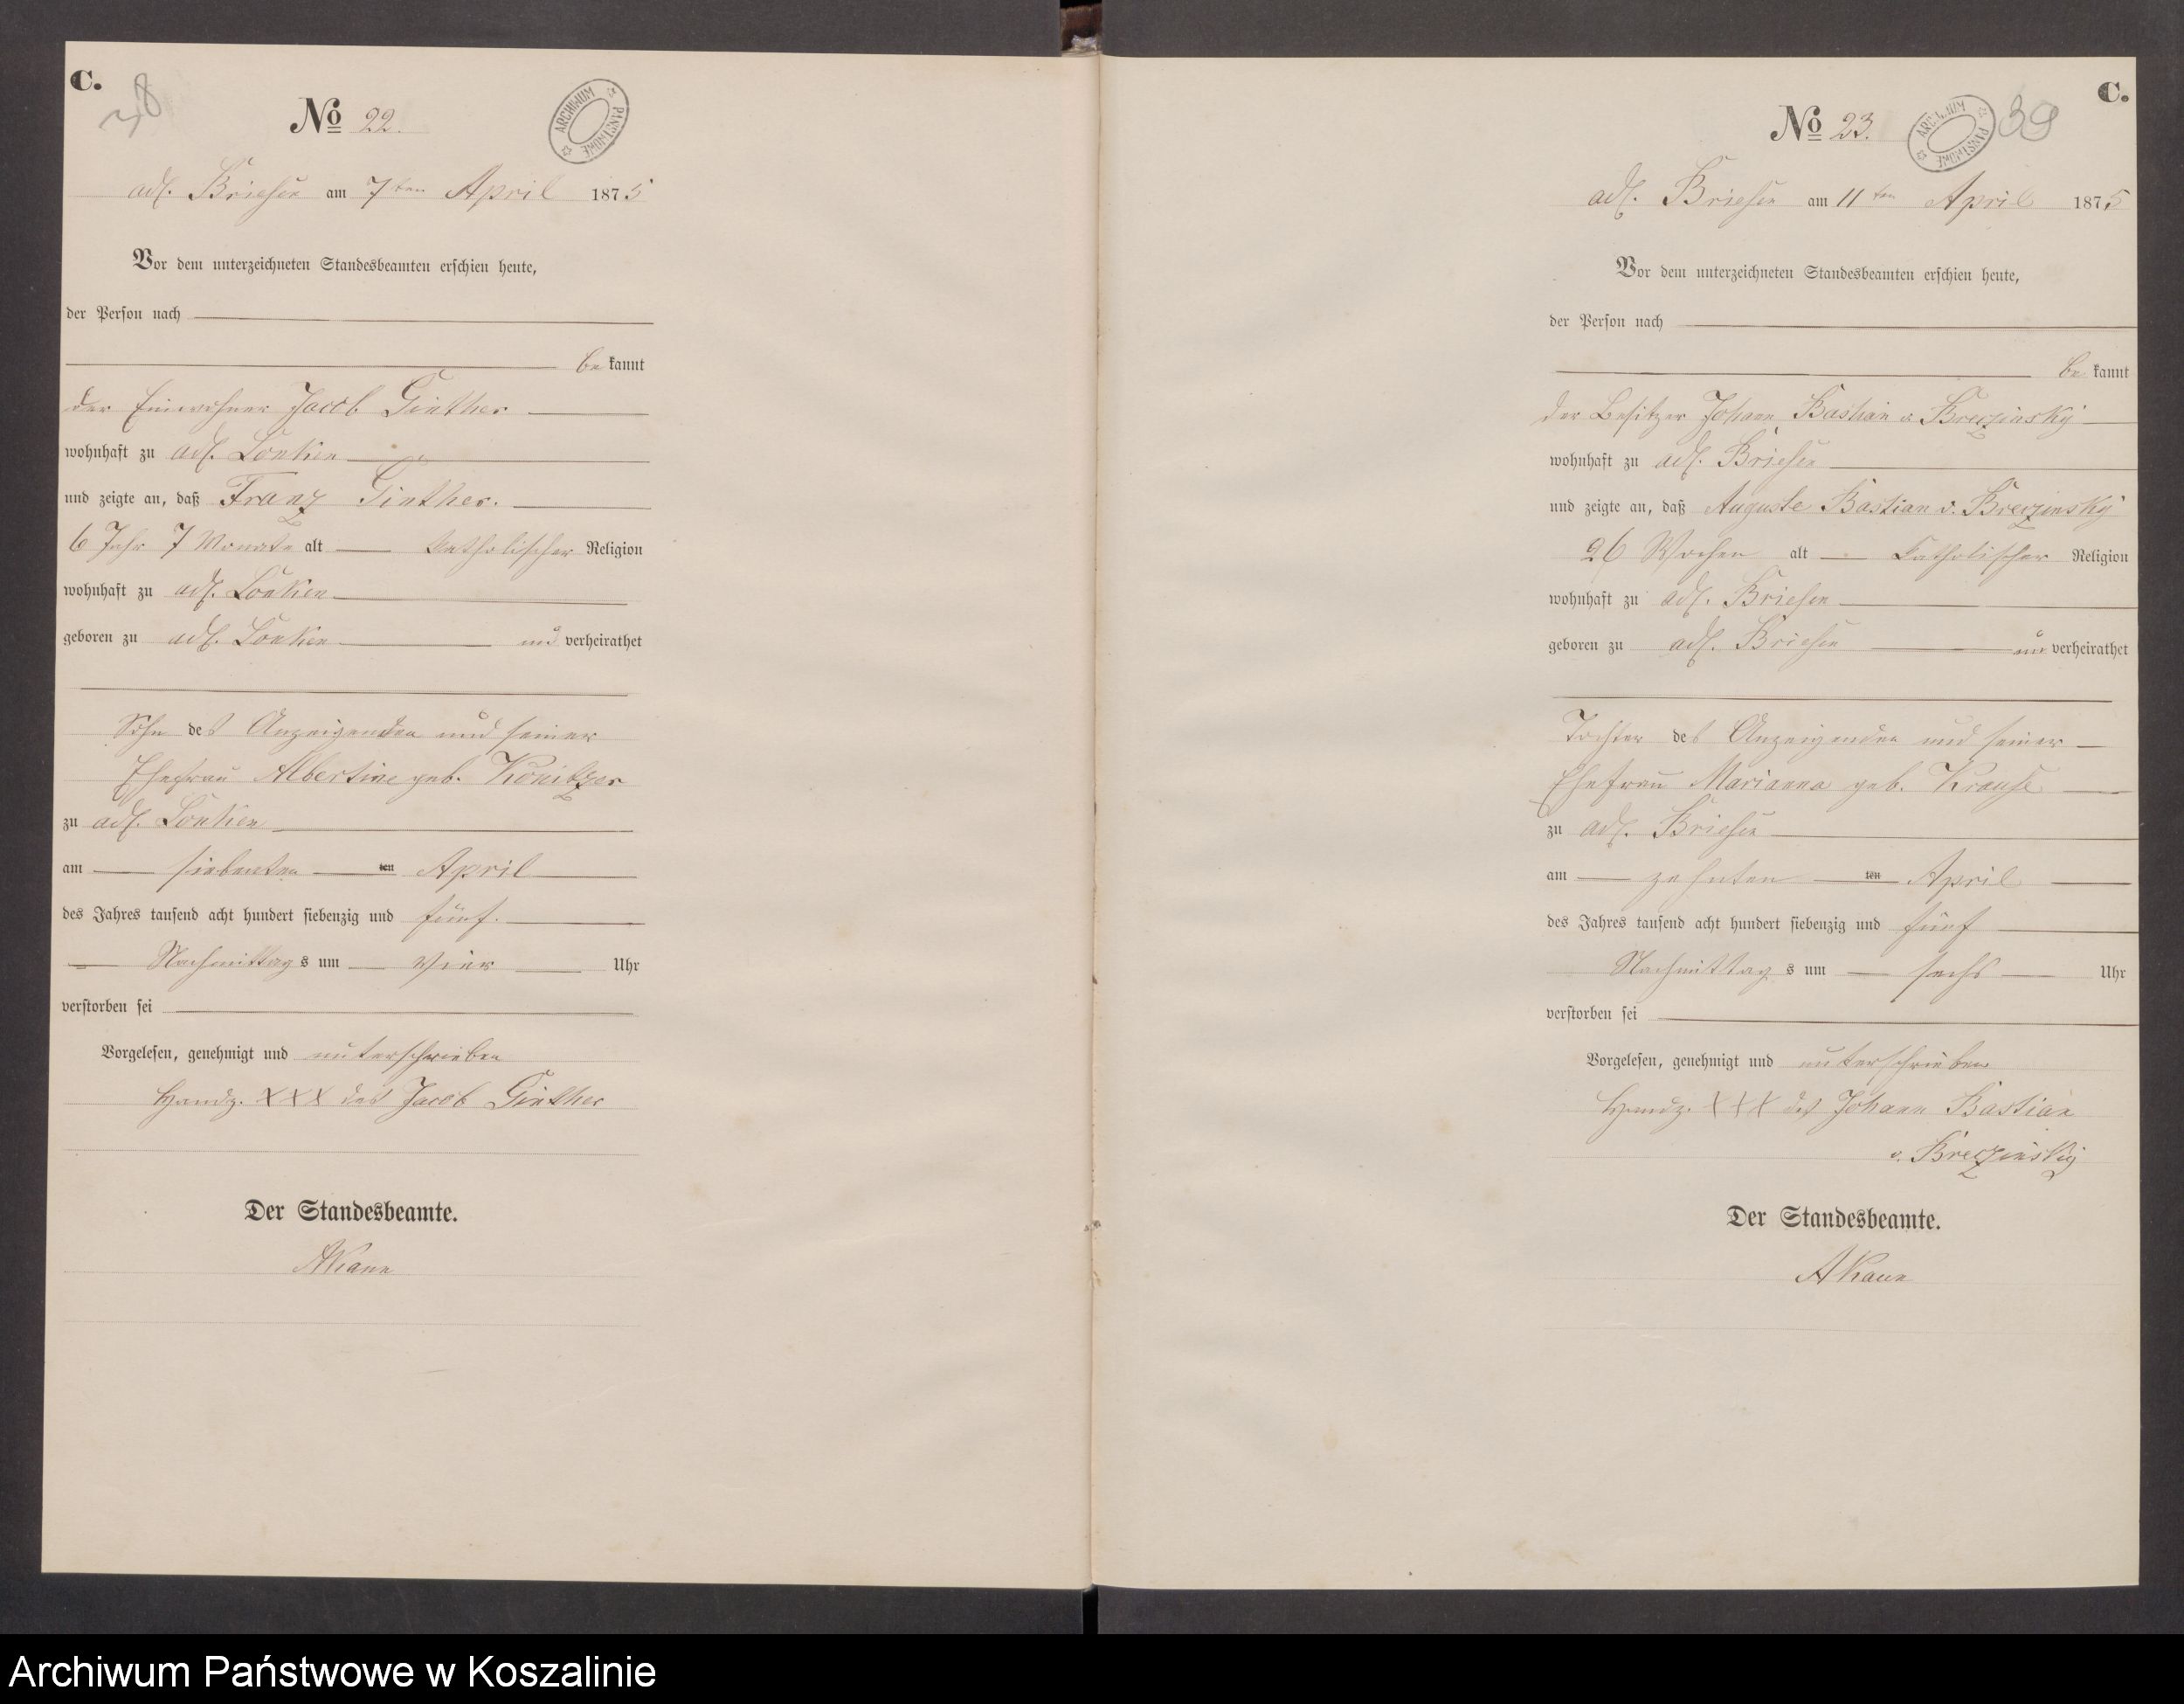 C.
38
No 22.
ARCHIWUM PAŃSTWOWE
adl. Briesen am 7ten April 1875
Vor dem unterzeichneten Standesbeamten erschien heute,
der Person nach
be kannt
der Einwohner Jacob Ginther
wohnhaft zu adl. Lonken
und zeigte an, daß Franz Ginther.
6 Jahr 7 Monate alt katholischer Religion
wohnhaft zu adl. Lonken
geboren zu adl. Lonken und verheirathet
Sohn des Anzeigenden und seiner
Ehefrau Albertine geb. Konitzer
zu adl. Lonken
am siebenten ten April
des Jahres tausend acht hundert siebenzig und fünf.
Nachmittags um vier Uhr
verstorben sei
Vorgelesen, genehmigt und unterschrieben
Handz. XXX des Jacob Ginther
Der Standesbeamte.
AKann
C.
39
No 23.
ARCHIWUM PAŃSTWOWE
adl. Briesen am 11ten April 1875
Vor dem unterzeichneten Standesbeamten erschien heute,
der Person nach
be kannt
der Besitzer Johann Bastian v. Breczinsky
wohnhaft zu adl. Briesen
und zeigte an, daß Auguste Bastian v. Breczinsky
26 Wochen alt katholischer Religion
wohnhaft zu adl. Briesen
geboren zu adl. Briesen un verheirathet
Tochter des Anzeigenden und seiner
Ehefrau Marianna geb. Krause
zu adl. Briesen
am zehnten ten April
des Jahres tausend acht hundert siebenzig und fünf
Nachmittags um sechs Uhr
verstorben sei
Vorgelesen, genehmigt und unterschrieben
Handz. XXX des Johann Bastian
v. Breczinsky
Der Standesbeamte.
AKann
Archiwum Państwowe w Koszalinie